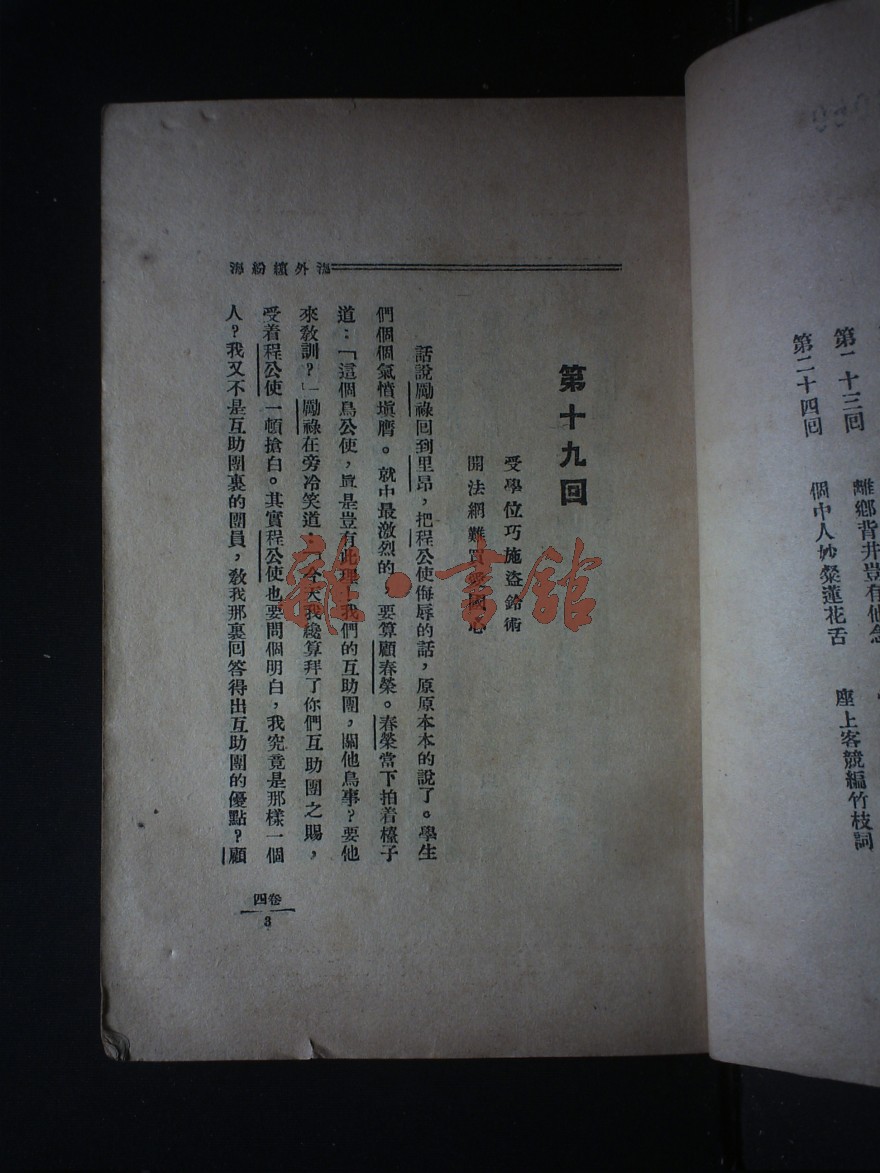 第二十三回 離鄉背井豈有他念
第二十四回 個中人妙粲蓮花舌 座上客競編竹枝詞
海外繽紛
第十九回
受學位巧施盜鈴術
開法網難買愛國心
話說勵祿回到里昂，把程公使侮辱的話，原原本本的說了。學生
們個個氣憤塡膺。就中最激烈的，要算顧春榮。春榮當下拍着檯子
道：「這個鳥公使，眞是豈有此理，我們的互助團，關他鳥事？要他
來敎訓？」勵祿在旁冷笑道：「今天我纔算拜了你們互助團之賜，
受着程公使一頓搶白。其實程公使也要問個明白，我究竟是那樣一個
人？我又不是互助團裏的團員，敎我那裏回答得出互助團的優點？顧
卷四
3
雜·書館